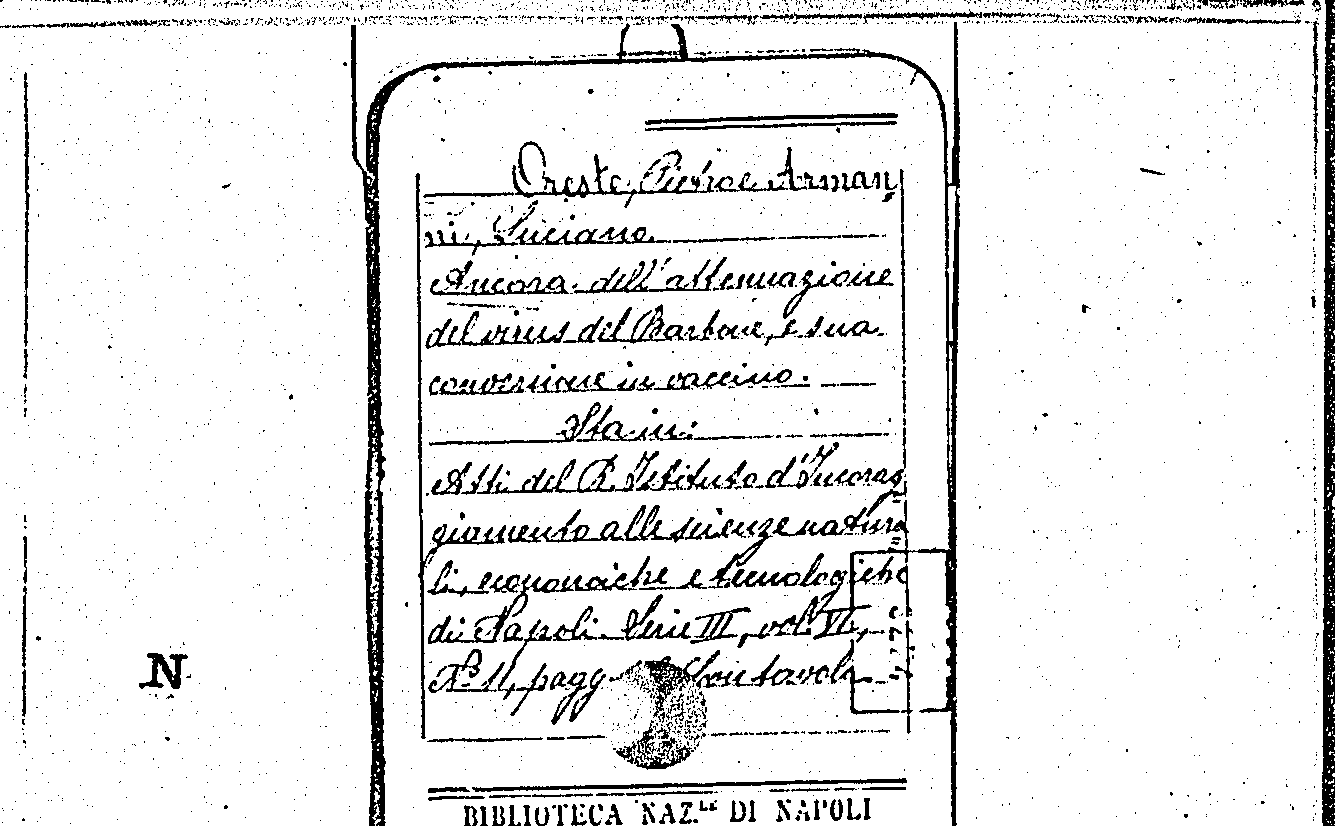 Oreste, Pietro e Arman
ni, Luciano.
Ancora dell'attenuazione
del virus del Barbone, e sua
conversione in vaccino.
Sta in:
Atti del R. Istituto d'Incorag
giamento alle scienze natura
li, economiche e tecnologiche
di Napoli. Serie III, vol. VI,
Nº 11, pagg. con tavole
N
BIBLIOTECA NAZ.LE DI NAPOLI